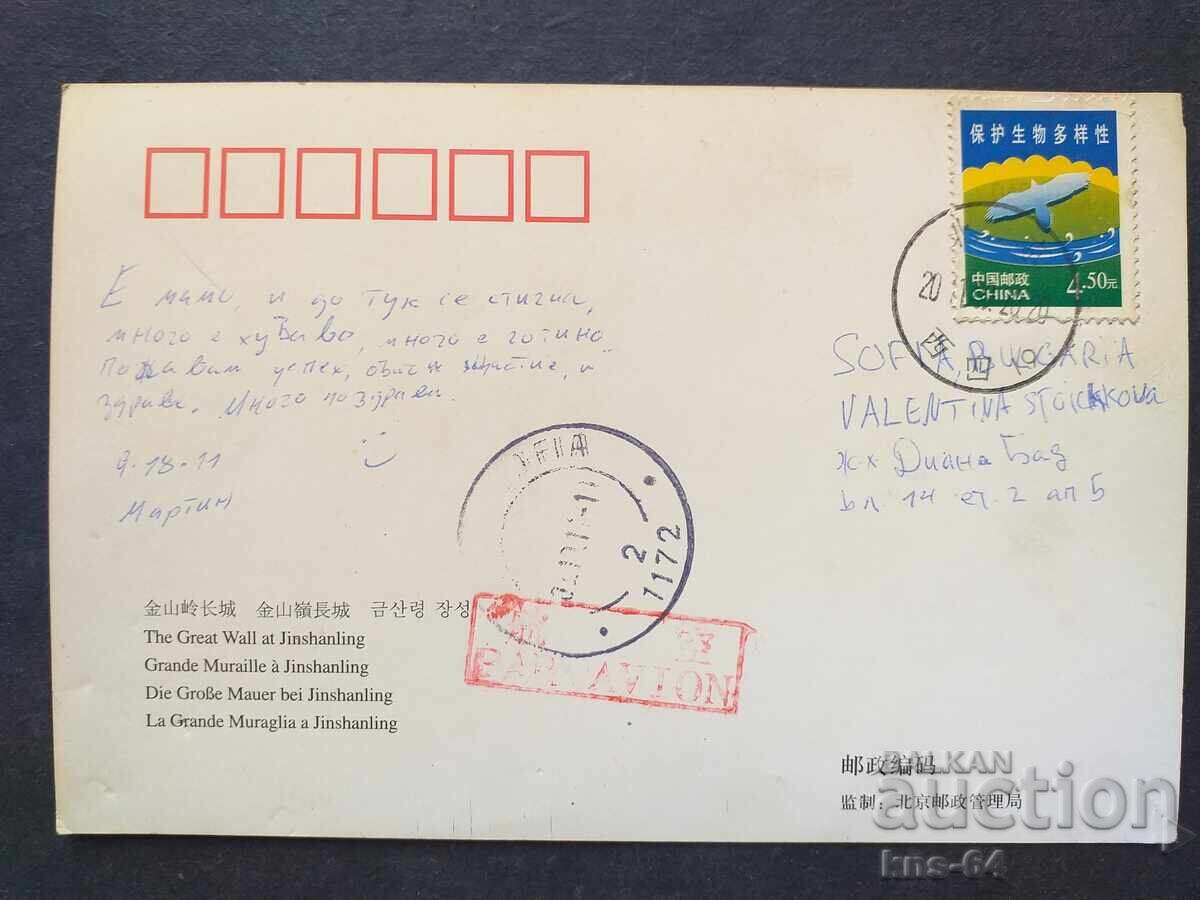 保护生物多样性
中国邮政
CHINA
4.50元
Е мамо, и до тук се стигна,
много е хубаво, много е готино
успех, и
здраве. Много поздрави.
9-18-11
Мартин
SOFIA, BULGARIA
VALENTINA STOICHKOVA
ж.к. Диана Бад
бл. 14 ет. 2 ап 5
2
1172
PAR AVION
金山岭长城 金山嶺長城 금산령 장성
The Great Wall at Jinshanling
Grande Muraille à Jinshanling
Die Große Mauer bei Jinshanling
La Grande Muraglia a Jinshanling
邮政编码
监制：北京邮政管理局
BALKAN
auction
kns-64